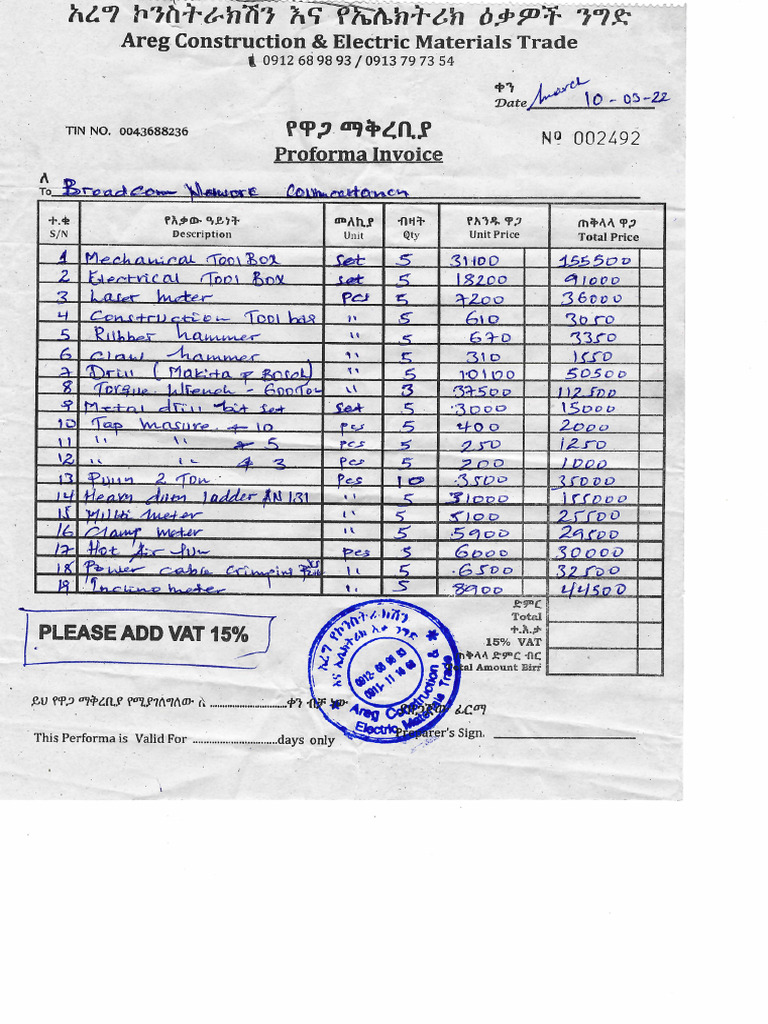 አረግ ኮንስትራክሽን እና የኤሌክትሪክ ዕቃዎች ንግድ
Areg Construction & Electric Materials Trade
0912 68 98 93 / 0913 79 73 54
ቀን
Date march 10-03-22
TIN NO. 0043688236
የዋጋ ማቅረቢያ
Nº 002492
Proforma Invoice
ለ
To Broadcom
ተ.ቁ የእቃው ዓይነት መለኪያ ብዛት የአንዱ ዋጋ ጠቅላላ ዋጋ
S/N Description Unit Qty Unit Price Total Price
1 Mechanical Tool Box set 5 31100 155500
2 Electrical Tool Box set 5 18200 91000
3 Laser meter pcs 5 7200 36000
4 Construction Tool bag " 5 610 3050
5 Rubber hammer " 5 670 3350
6 Claw hammer " 5 310 1550
7 Drill (Makita & Bosch) " 5 10100 50500
8 Torque Wrench - 600 " 3 37500 112500
9 Metal drill bit set set 5 3000 15000
10 Tap masure 10 pcs 5 400 2000
11 " " 5 pcs 5 250 1250
12 " " 3 pcs 5 200 1000
13 2 Ton pcs 10 3500 35000
14 ladder " 5 31000 155000
15 Multi meter " 5 5100 25500
16 Clamp meter " 5 5900 29500
17 Hot Air gun pcs 5 6000 30000
18 Power cable Crimping " 5 6500 32500
19 Inclinometer " 5 8900 44500
ድምር
Total
ተ.እ.ታ
15% VAT
ጠቅላላ ድምር ብር
Total Amount Birr
PLEASE ADD VAT 15%
አረግ የኮንስትራክሽን
እና ኤሌክትሪክ እቃ ንግድ
Areg Construction &
Electric Materials Trade
ይህ የዋጋ ማቅረቢያ የሚያገለግለው ለ ........................ቀን ብቻ ነው
ፊርማ
This Performa is Valid For ............................days only
Preparer's Sign.